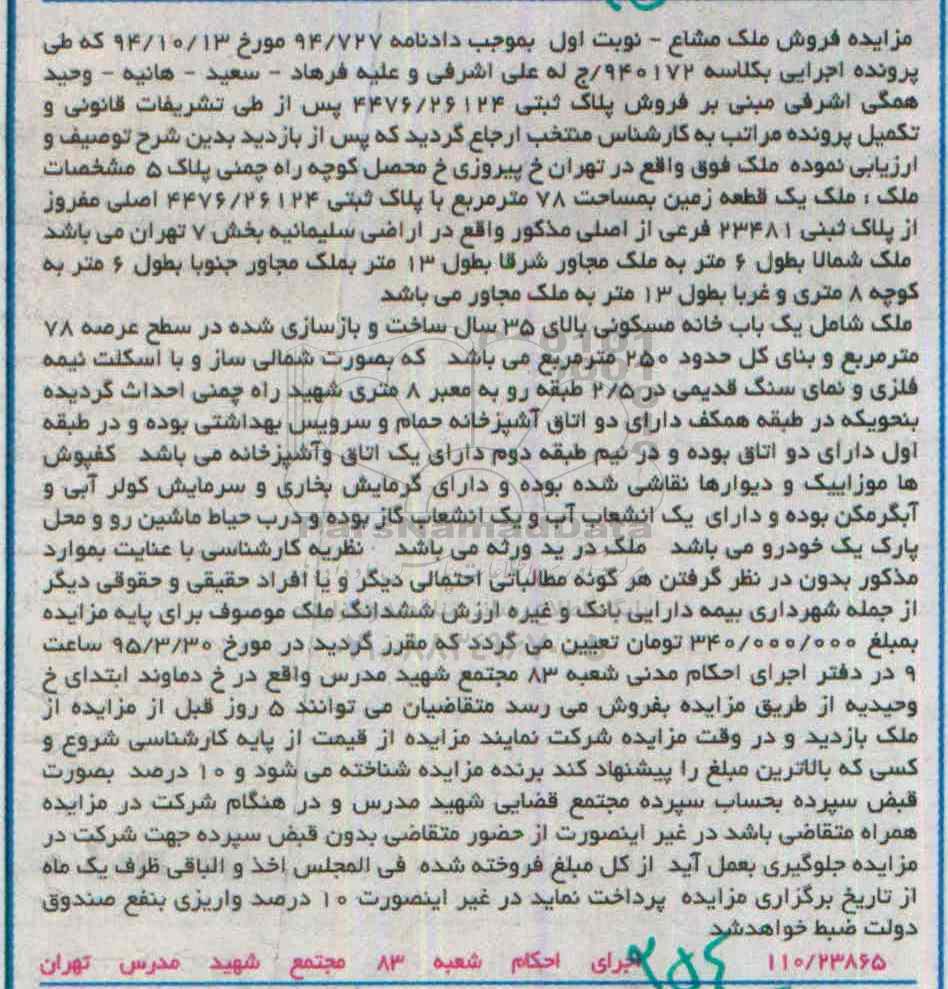 مزایده فروش ملک مشاع - نوبت اول بموجب دادنامه ۹۴/۷۲۷ مورخ ۹۴/۱۰/۱۳ که طی
پرونده اجرایی بکلاسه ۹۴۰۱۷۲/ج له علی اشرفی و علیه فرهاد - سعید - هانیه - وحید
همگی اشرفی مبنی بر فروش پلاک ثبتی ۴۴۷۶/۲۶۱۲۴ پس از طی تشریفات قانونی و
تکمیل پرونده مراتب به کارشناس منتخب ارجاع گردید که پس از بازدید بدین شرح توصیف و
ارزیابی نموده ملک فوق واقع در تهران خ پیروزی خ محصل کوچه راه چمنی پلاک ۵ مشخصات
ملک : ملک یک قطعه زمین بمساحت ۷۸ مترمربع با پلاک ثبتی ۴۴۷۶/۲۶۱۲۴ اصلی مفروز
از پلاک ثبنی ۲۳۴۸۱ فرعی از اصلی مذکور واقع در اراضی سلیمانیه بخش ۷ تهران می باشد
ملک شمالا بطول ۶ متر به ملک مجاور شرقا بطول ۱۳ متر بملک مجاور جنوبا بطول ۶ متر به
کوچه ۸ متری و غربا بطول ۱۳ متر به ملک مجاور می باشد
ملک شامل یک باب خانه مسکونی بالای ۳۵ سال ساخت و بازسازی شده در سطح عرصه ۷۸
مترمربع و بنای کل حدود ۲۵۰ مترمربع می باشد که بصورت شمالی ساز و با اسکلت نیمه
فلزی و نمای سنگ قدیمی در ۲/۵ طبقه رو به معبر ۸ متری شهید راه چمنی احداث گردیده
بنحویکه در طبقه همکف دارای دو اتاق آشپزخانه حمام و سرویس بهداشتی بوده و در طبقه
اول دارای دو اتاق بوده و در نیم طبقه دوم دارای یک اتاق وآشپزخانه می باشد کفپوش
ها موزاییک و دیوارها نقاشی شده بوده و دارای گرمایش بخاری و سرمایش کولر آبی و
آبگرمکن بوده و دارای یک انشعاب آب و یک انشعاب گاز بوده و درب حیاط ماشین رو و محل
پارک یک خودرو می باشد ملک در ید ورثه می باشد نظریه کارشناسی با عنایت بموارد
مذکور بدون در نظر گرفتن هر گونه مطالباتی احتمالی دیگر و یا افراد حقیقی و حقوقی دیگر
از جمله شهرداری بیمه دارایی بانک و غیره ارزش ششدانگ ملک موصوف برای پایه مزایده
بمبلغ ۳۴۰/۰۰۰/۰۰۰ تومان تعیین می گردد که مقرر گردید در مورخ ۹۵/۳/۳۰ ساعت
۹ در دفتر اجرای احکام مدنی شعبه ۸۳ مجتمع شهید مدرس واقع در خ دماوند ابتدای خ
وحیدیه از طریق مزایده بفروش می رسد متقاضیان می توانند ۵ روز قبل از مزایده از
ملک بازدید و در وقت مزایده شرکت نمایند مزایده از قیمت از پایه کارشناسی شروع و
کسی که بالاترین مبلغ را پیشنهاد کند برنده مزایده شناخته می شود و ۱۰ درصد بصورت
قبض سپرده بحساب سپرده مجتمع قضایی شهید مدرس و در هنگام شرکت در مزایده
همراه متقاضی باشد در غیر اینصورت از حضور متقاضی بدون قبض سپرده جهت شرکت در
مزایده جلوگیری بعمل آید از کل مبلغ فروخته شده فی المجلس اخذ و الباقی ظرف یک ماه
از تاریخ برگزاری مزایده پرداخت نماید در غیر اینصورت ۱۰ درصد واریزی بنفع صندوق
دولت ضبط خواهدشد
۱۱۰/۲۳۸۶۵ اجرای احکام شعبه ۸۳ مجتمع شهید مدرس تهران
ParsNamadData